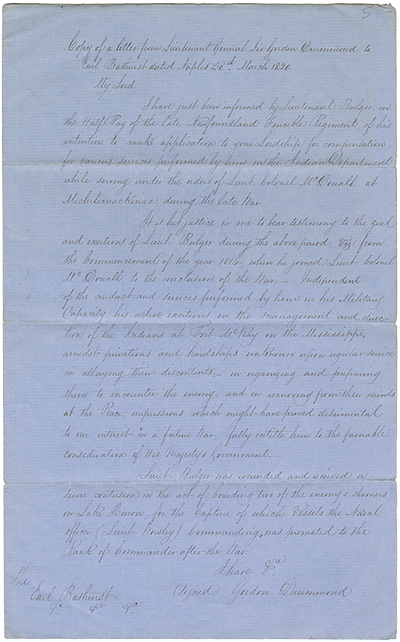 5
Copy of a letter from Lieutenant General Sir Gordon Drummond to
Earl Bathurst dated Naples 26th March 1820.
My Lord
I have just been informed by Lieutenant Bulger, on
the Half Pay of the late Newfoundland Fencible Regiment, of his
intention to make application to your Lordship for compensation
for various services performed by him in the Indian Department
while serving under the orders of Lieut. Colonel McDouall at
Michilimackinac during the late War.
It is but justice in me to bear testimony to the zeal
and exertions of Lieut. Bulger during the above period, viz. from
the Commencement of the year 1814, when he joined Lieut. Colonel
McDouall to the conclusion of the War. – Independent
of the conduct and services performed by him in his Military
Capacity his active exertions in the management and direc-
tion of the Indians at Fort McKay on the Mississippi,
amidst privations and hardships unknown upon regular service
in allaying their discontents; – in organizing and preparing
them to encounter the enemy; and in removing from their minds
at the Peace, impressions which might have proved detrimental
to our interest in a future War, fully entitle him to the favorable
consideration of His Majesty's Government.
Lieut. Bulger was wounded and received a
severe contusion in the act of boarding two of the enemy's schooners
in Lake Huron for the Capture of which Vessels the Naval
officer (Lieut. Worsley) Commanding, was promoted to the
Rank of Commander after the War.
I have &ca
(Signed) Gordon Drummond
The
Earl Bathurst
&c. &c. &c.